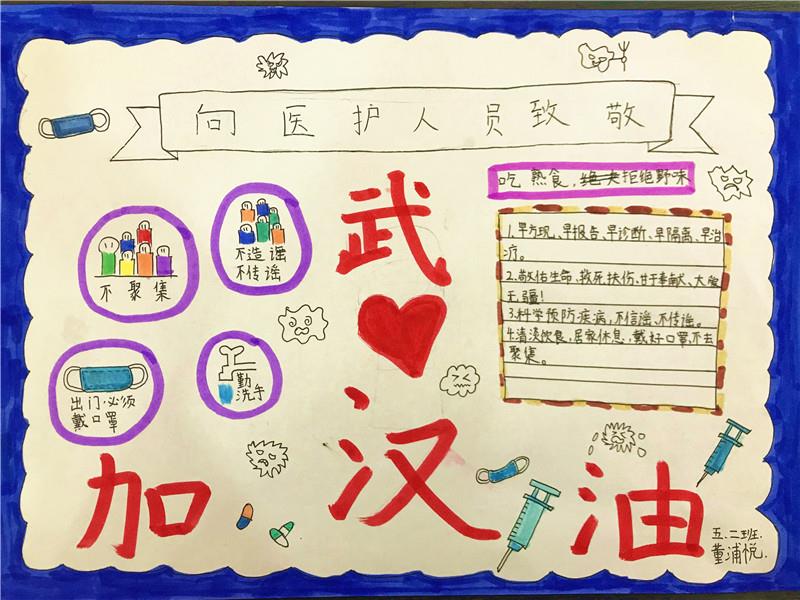 向医护人员致敬
吃熟食,绝夹拒绝野味
武
汉
加
油
不聚集
不造谣
不传谣
出门必须
戴口罩
勤
洗手
1.早发现、早报告、早诊断、早隔离、早治
疗。
2.敬佑生命、救死扶伤、甘于奉献、大爱
无疆!
3.科学预防疾病,不信谣、不传谣。
4.清淡饮食,居家休息,戴好口罩,不去
聚集。
五.二班.
董浦悦.